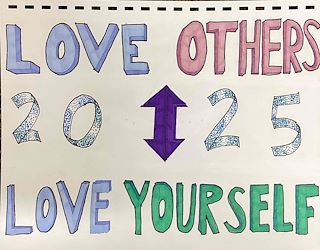 LOVE OTHERS
2025
LOVE YOURSELF